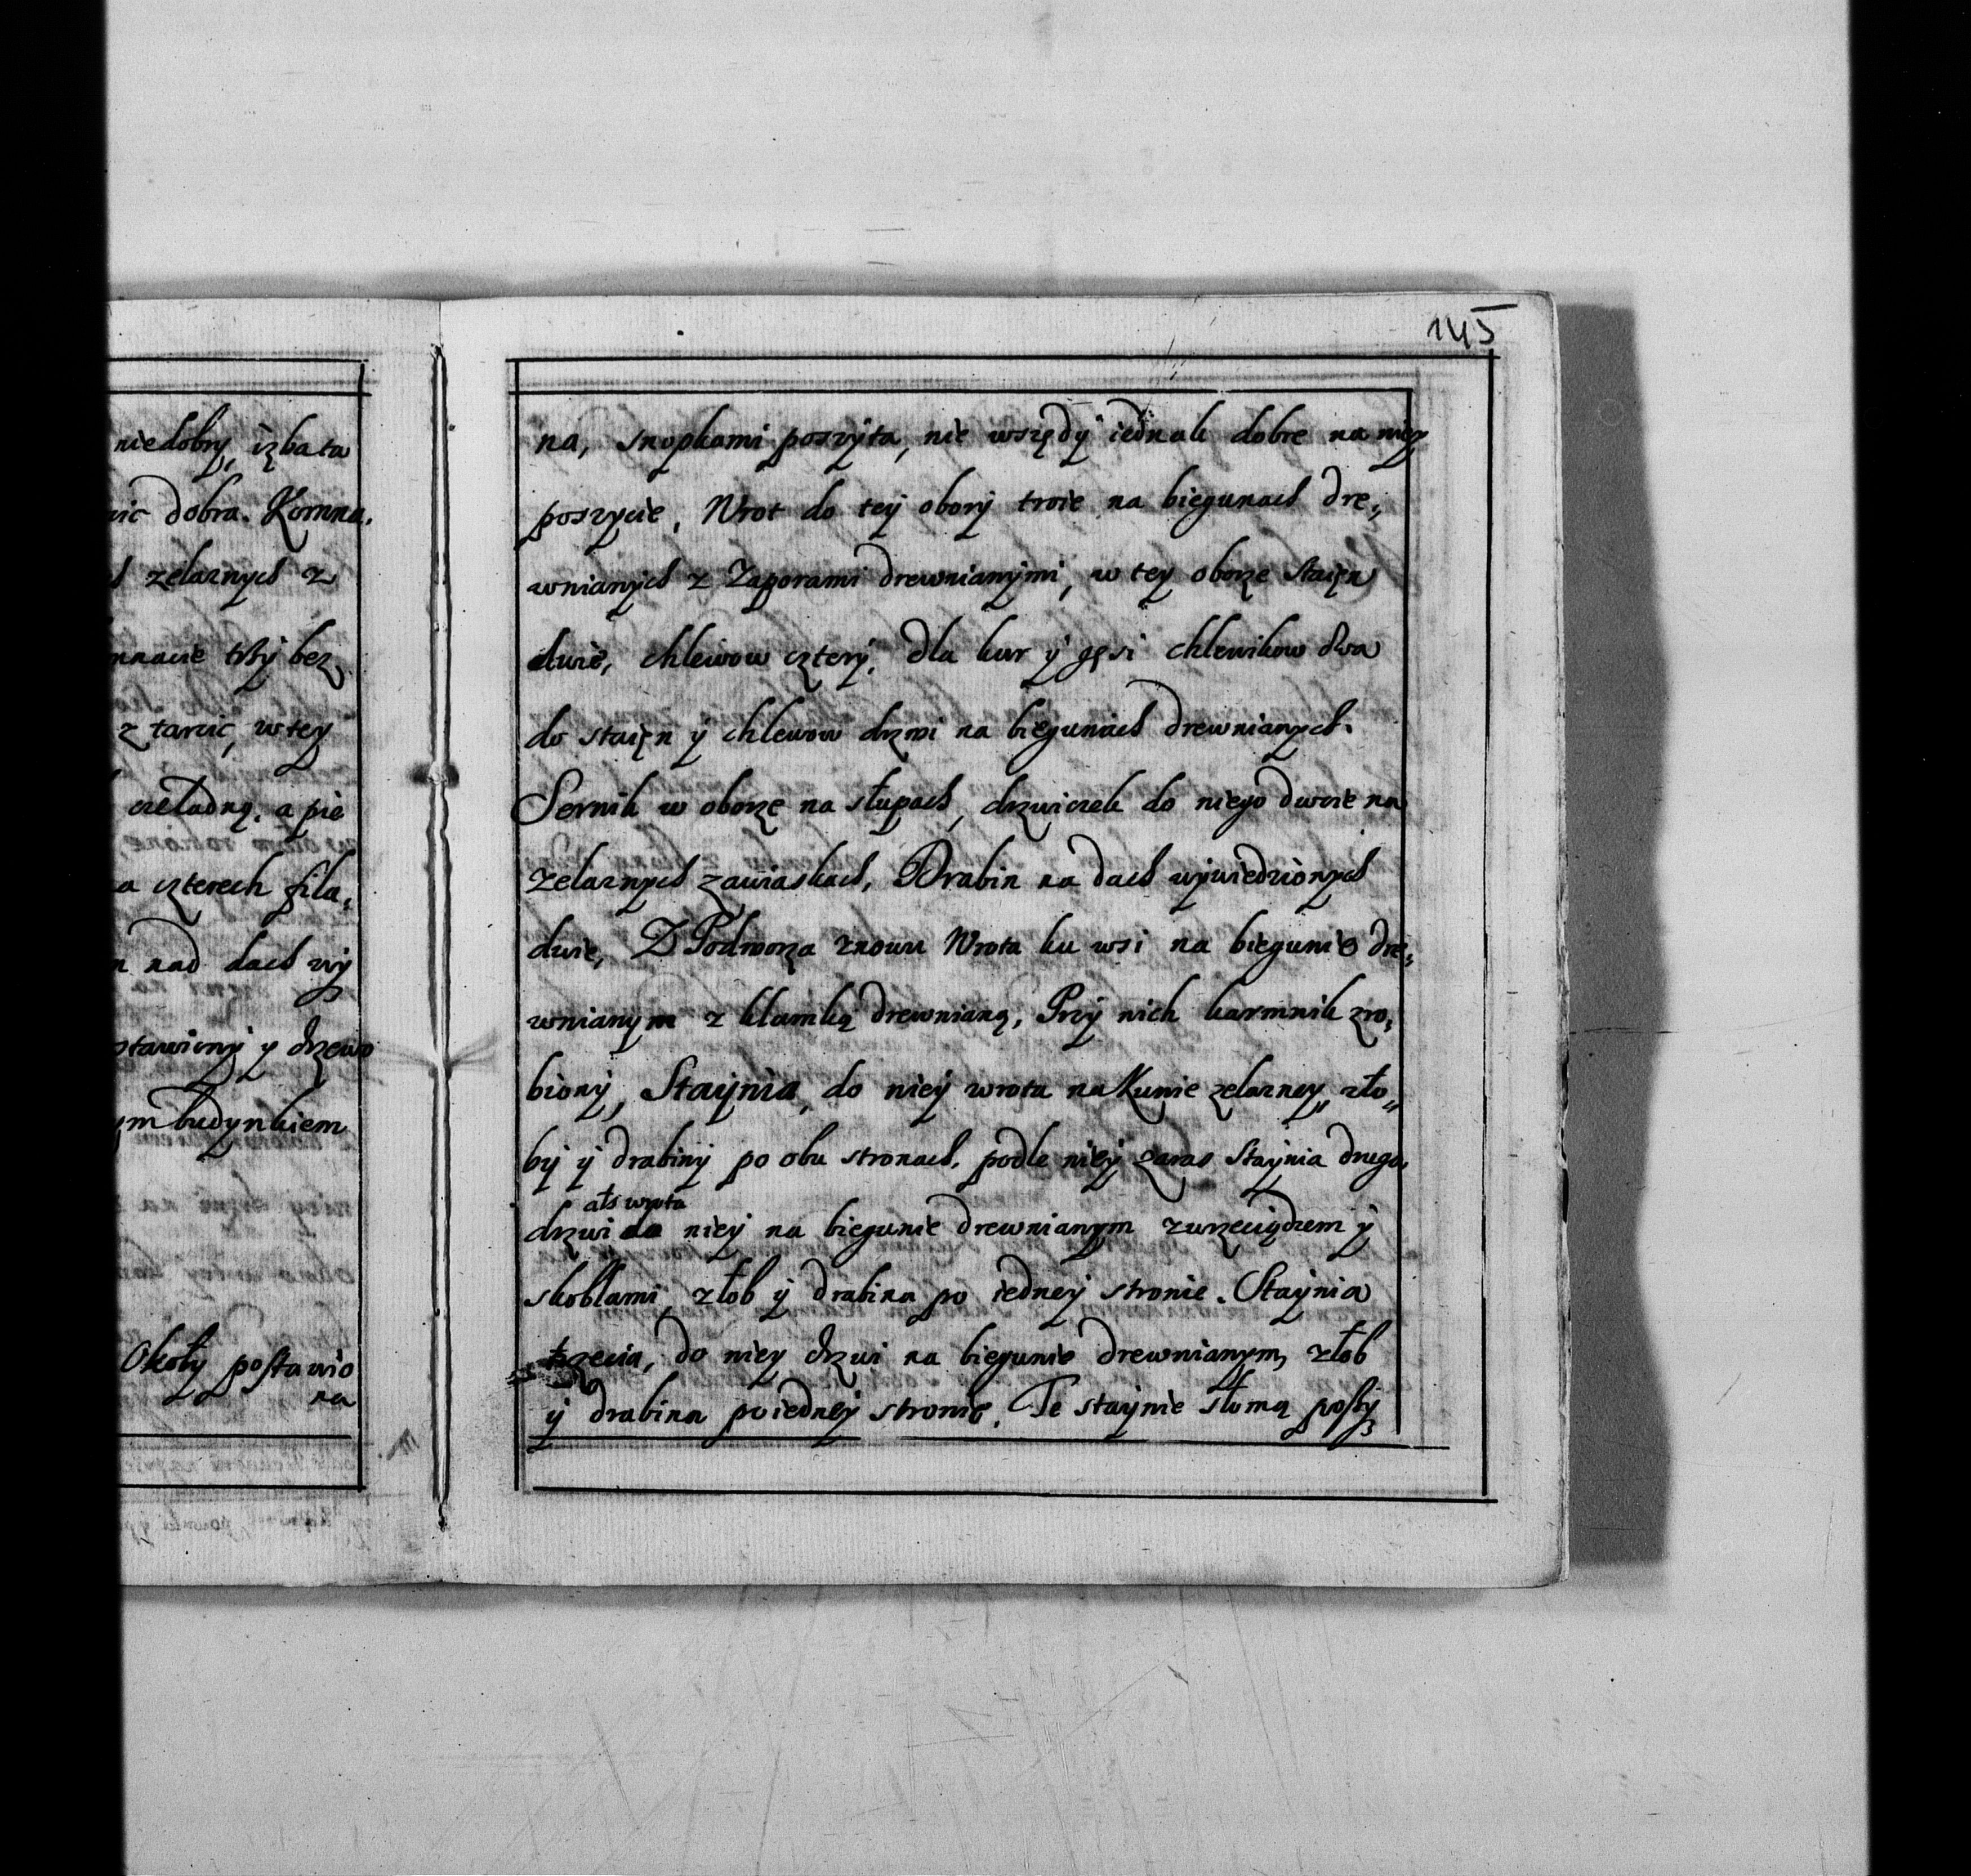 niedobry, izba ta
dobra. Komna.
zelaznych z
mnacie trzy bez
z tarcic, w tey
czeladną. a pie
a czterech fila,
nad dach wy
ostawiony y drzewo
ym budynkiem
Okoły postawio
na
145
na, snopkami poszyta, nie wszędy iednak dobre na niey
poszycie, Wrot do tey obory troie na biegunach dre,,
wnianych z Zaporami drewnianymi, w tey oborze staien
dwie, chlewow cztery, dla kur y gęsi chlewikow dwa
do staien y chlewow drzwi na biegunach drewnianych.
Sernik w oborze na słupach, drzwiczek do niego dwoie na
zelaznych zawiaskach, Drabin na dach wywiedzionych
dwie, Z Podworza znowu Wrota ku wsi na biegunie dre,,
wnianym z klamką drewnianą, Przy nich karmnik zro,
biony, Staynia, do niey wrota na Kunie zelazney, zło,,
by y drabiny po obu stronach. podle niey zaras staynia druga,
als wrota
drzwi do niey na biegunie drewnianym z wrzeciądzem y
skoblami, złob y drabina po iedney stronie. Staynia
trzecia, do niey drzwi na biegunie drewnianym, złob
y drabina po iedney stronie. Te staynie słomą poszy